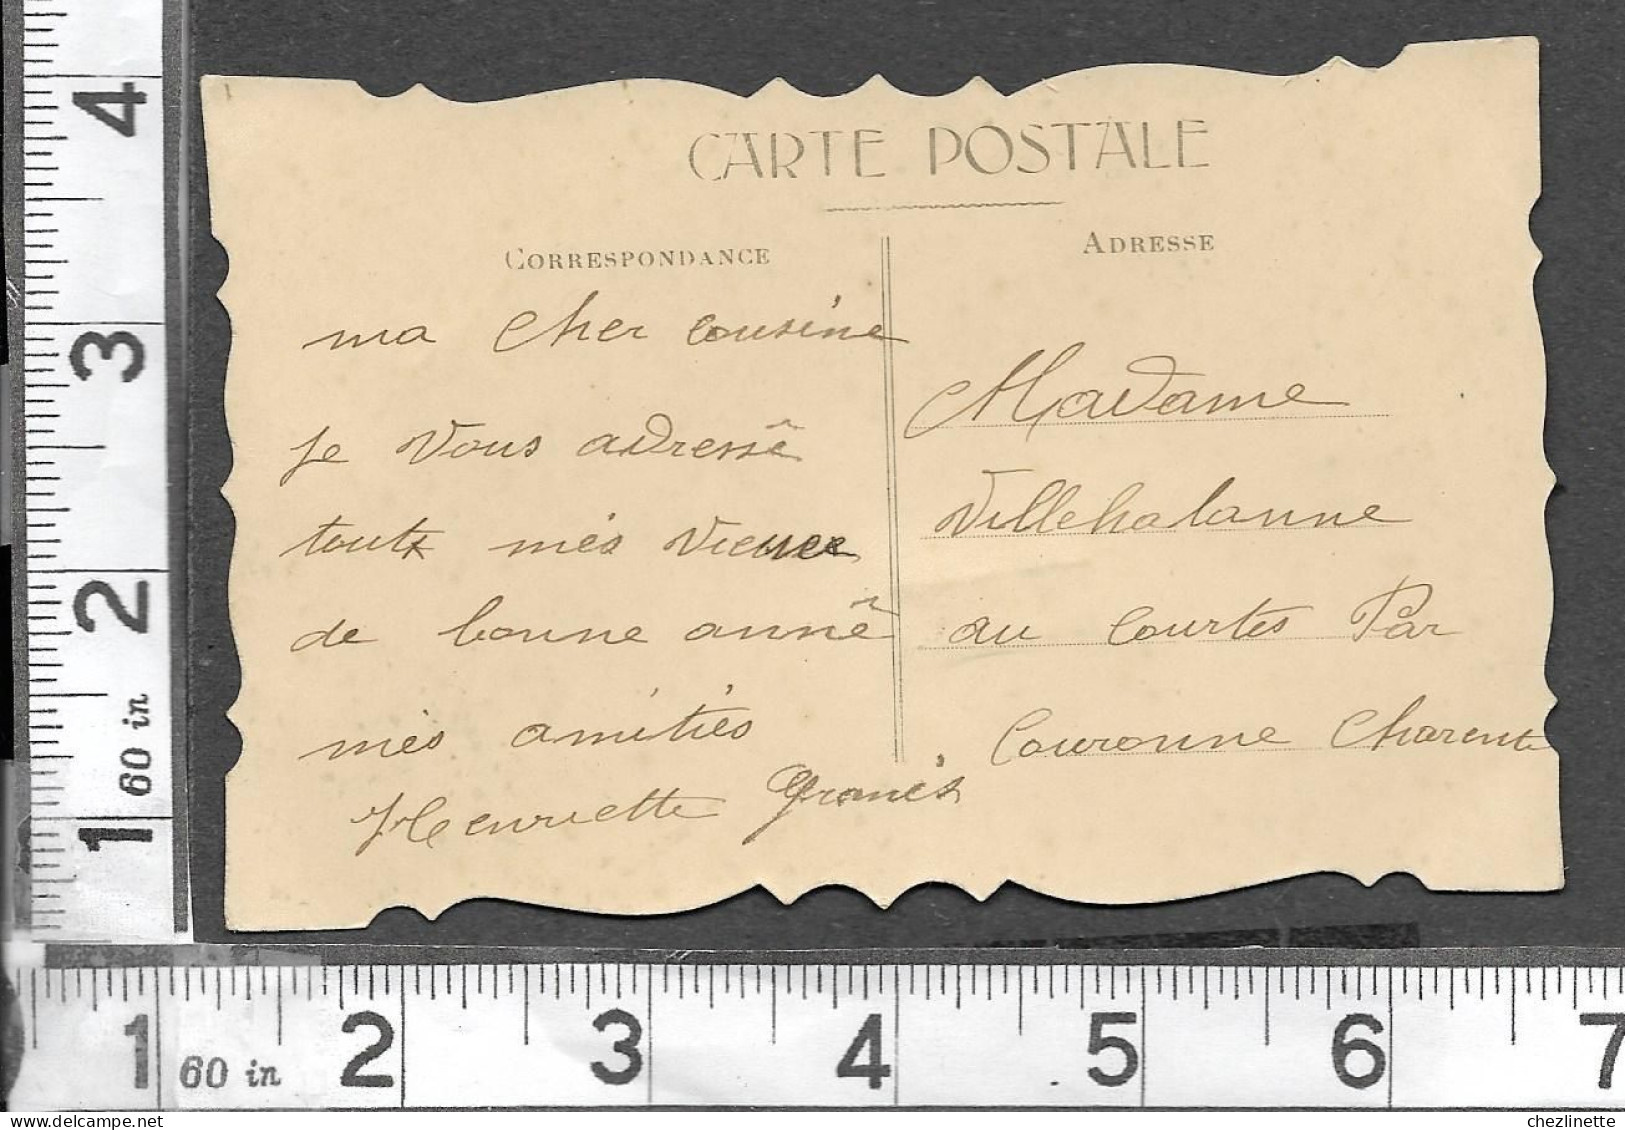 CARTE POSTALE
CORRESPONDANCE
ma cher cousine
je vous adresse
toute mes
de bonne anné
mes amitiés
Henriette
ADRESSE
Madame
Villechalanne
au Courtes Par
Couronne Charente
4
3
2
60 in
1
1 60 in 2 3 4 5 6 7
chezlinette